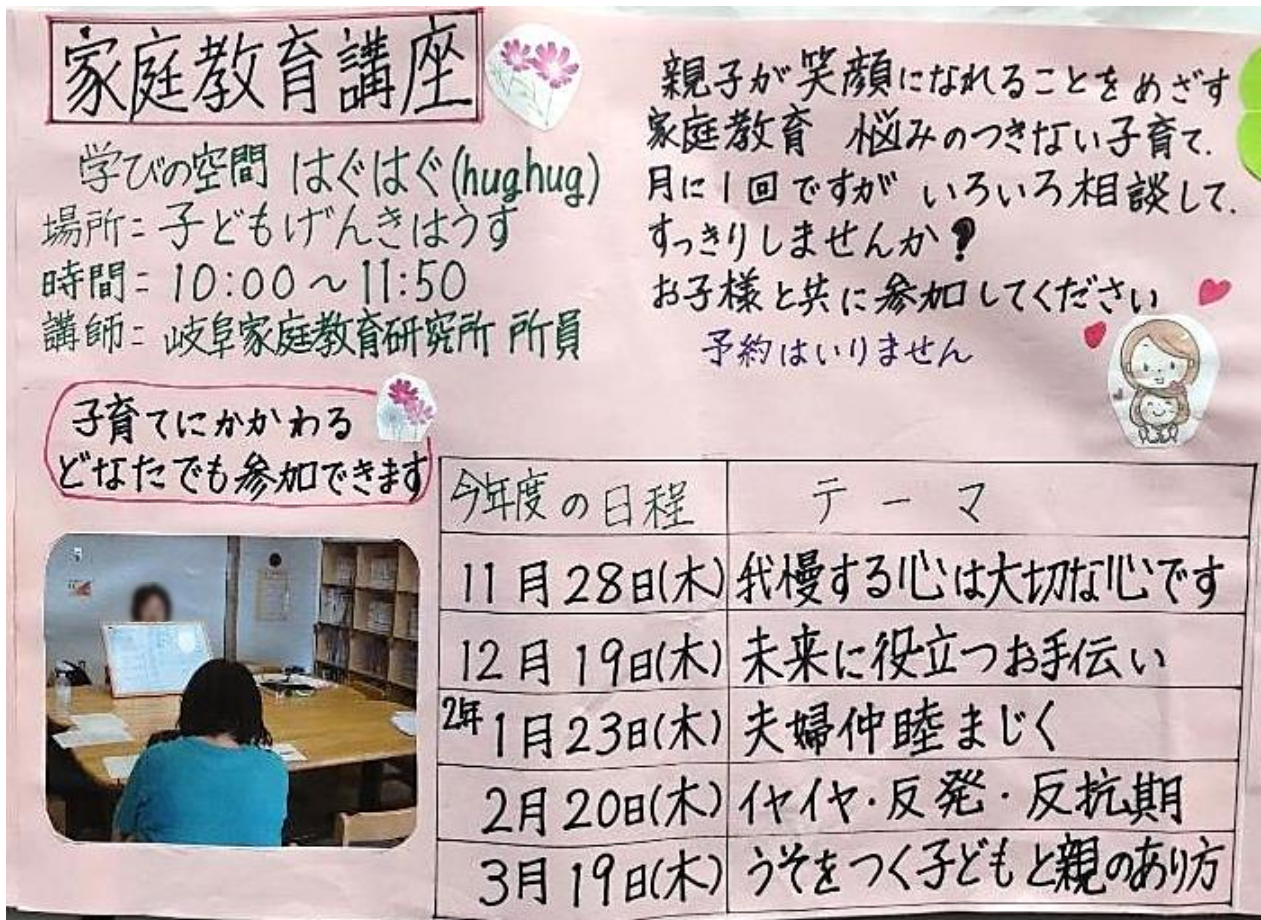 家庭教育講座
学びの空間 はぐはぐ(hughug)
場所：子どもげんきはうす
時間：10:00～11:50
講師：岐阜家庭教育研究所 所員
親子が笑顔になれることをめざす
家庭教育 悩みのつきない子育て.
月に1回ですが いろいろ相談して.
すっきりしませんか？
お子様と共に参加してください
予約はいりません
子育てにかかわる
どなたでも参加できます
今年度の日程 テーマ
11月28日(木) 我慢する心は大切な心です
12月19日(木) 未来に役立つお手伝い
2年1月23日(木) 夫婦仲睦まじく
2月20日(木) イヤイヤ・反発・反抗期
3月19日(木) うそをつく子どもと親のあり方